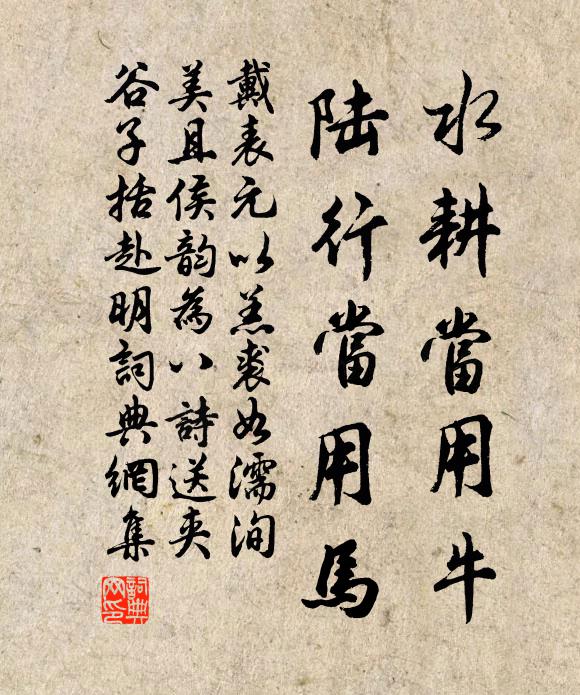 水耕當用牛
陆行當用馬
戴表元以羔裘如濡洵
美且侯韵為八詩送夾
谷子括赴明詞典網集
詞典